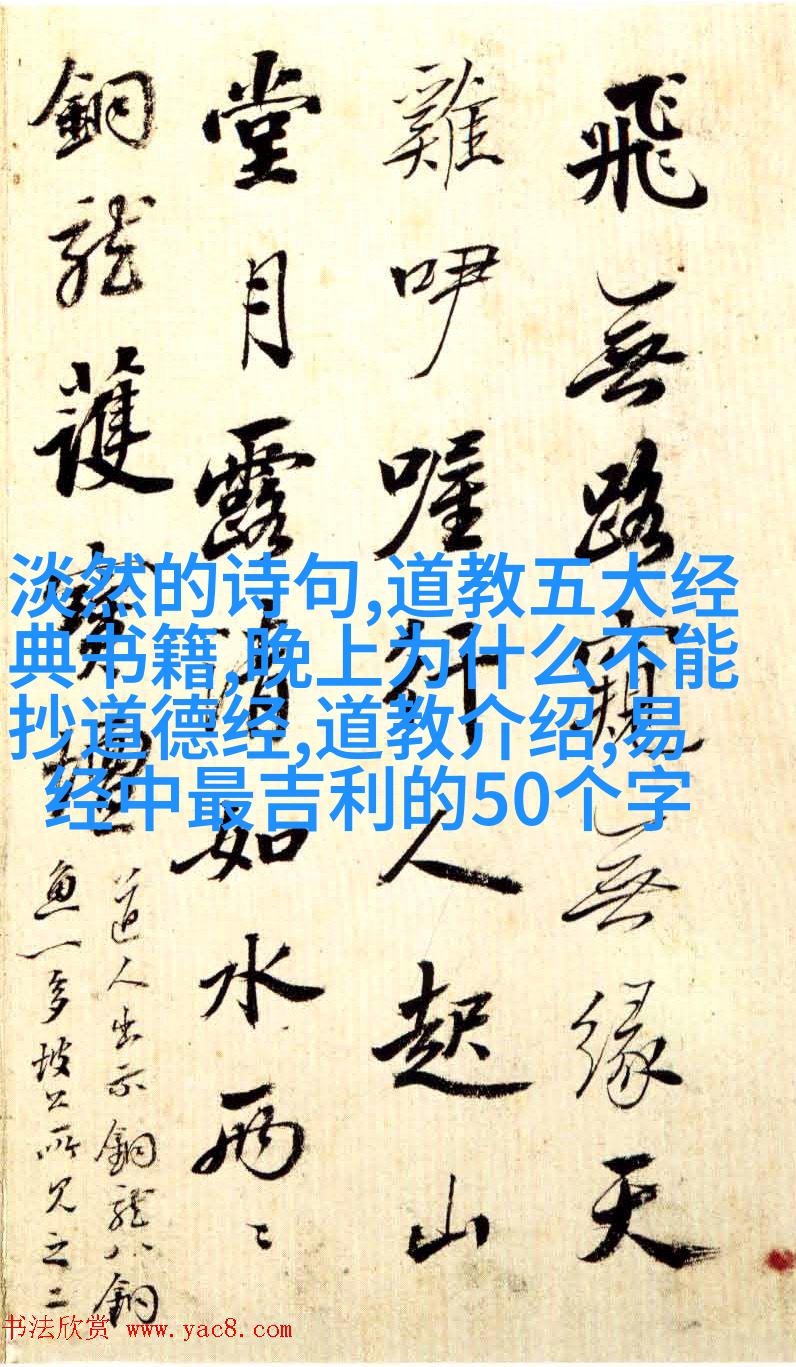 飛無路窺無緣天
雞咿喔人起山
堂月露清如水兩〻
銅龍護壇
道人出示銅龍八銅
魚一多坡公所見之二
淡然的诗句,道教五大经
典书籍,晚上为什么不能
抄道德经,道教介绍,易
经中最吉利的50个字
书法欣赏 www.yac8.com